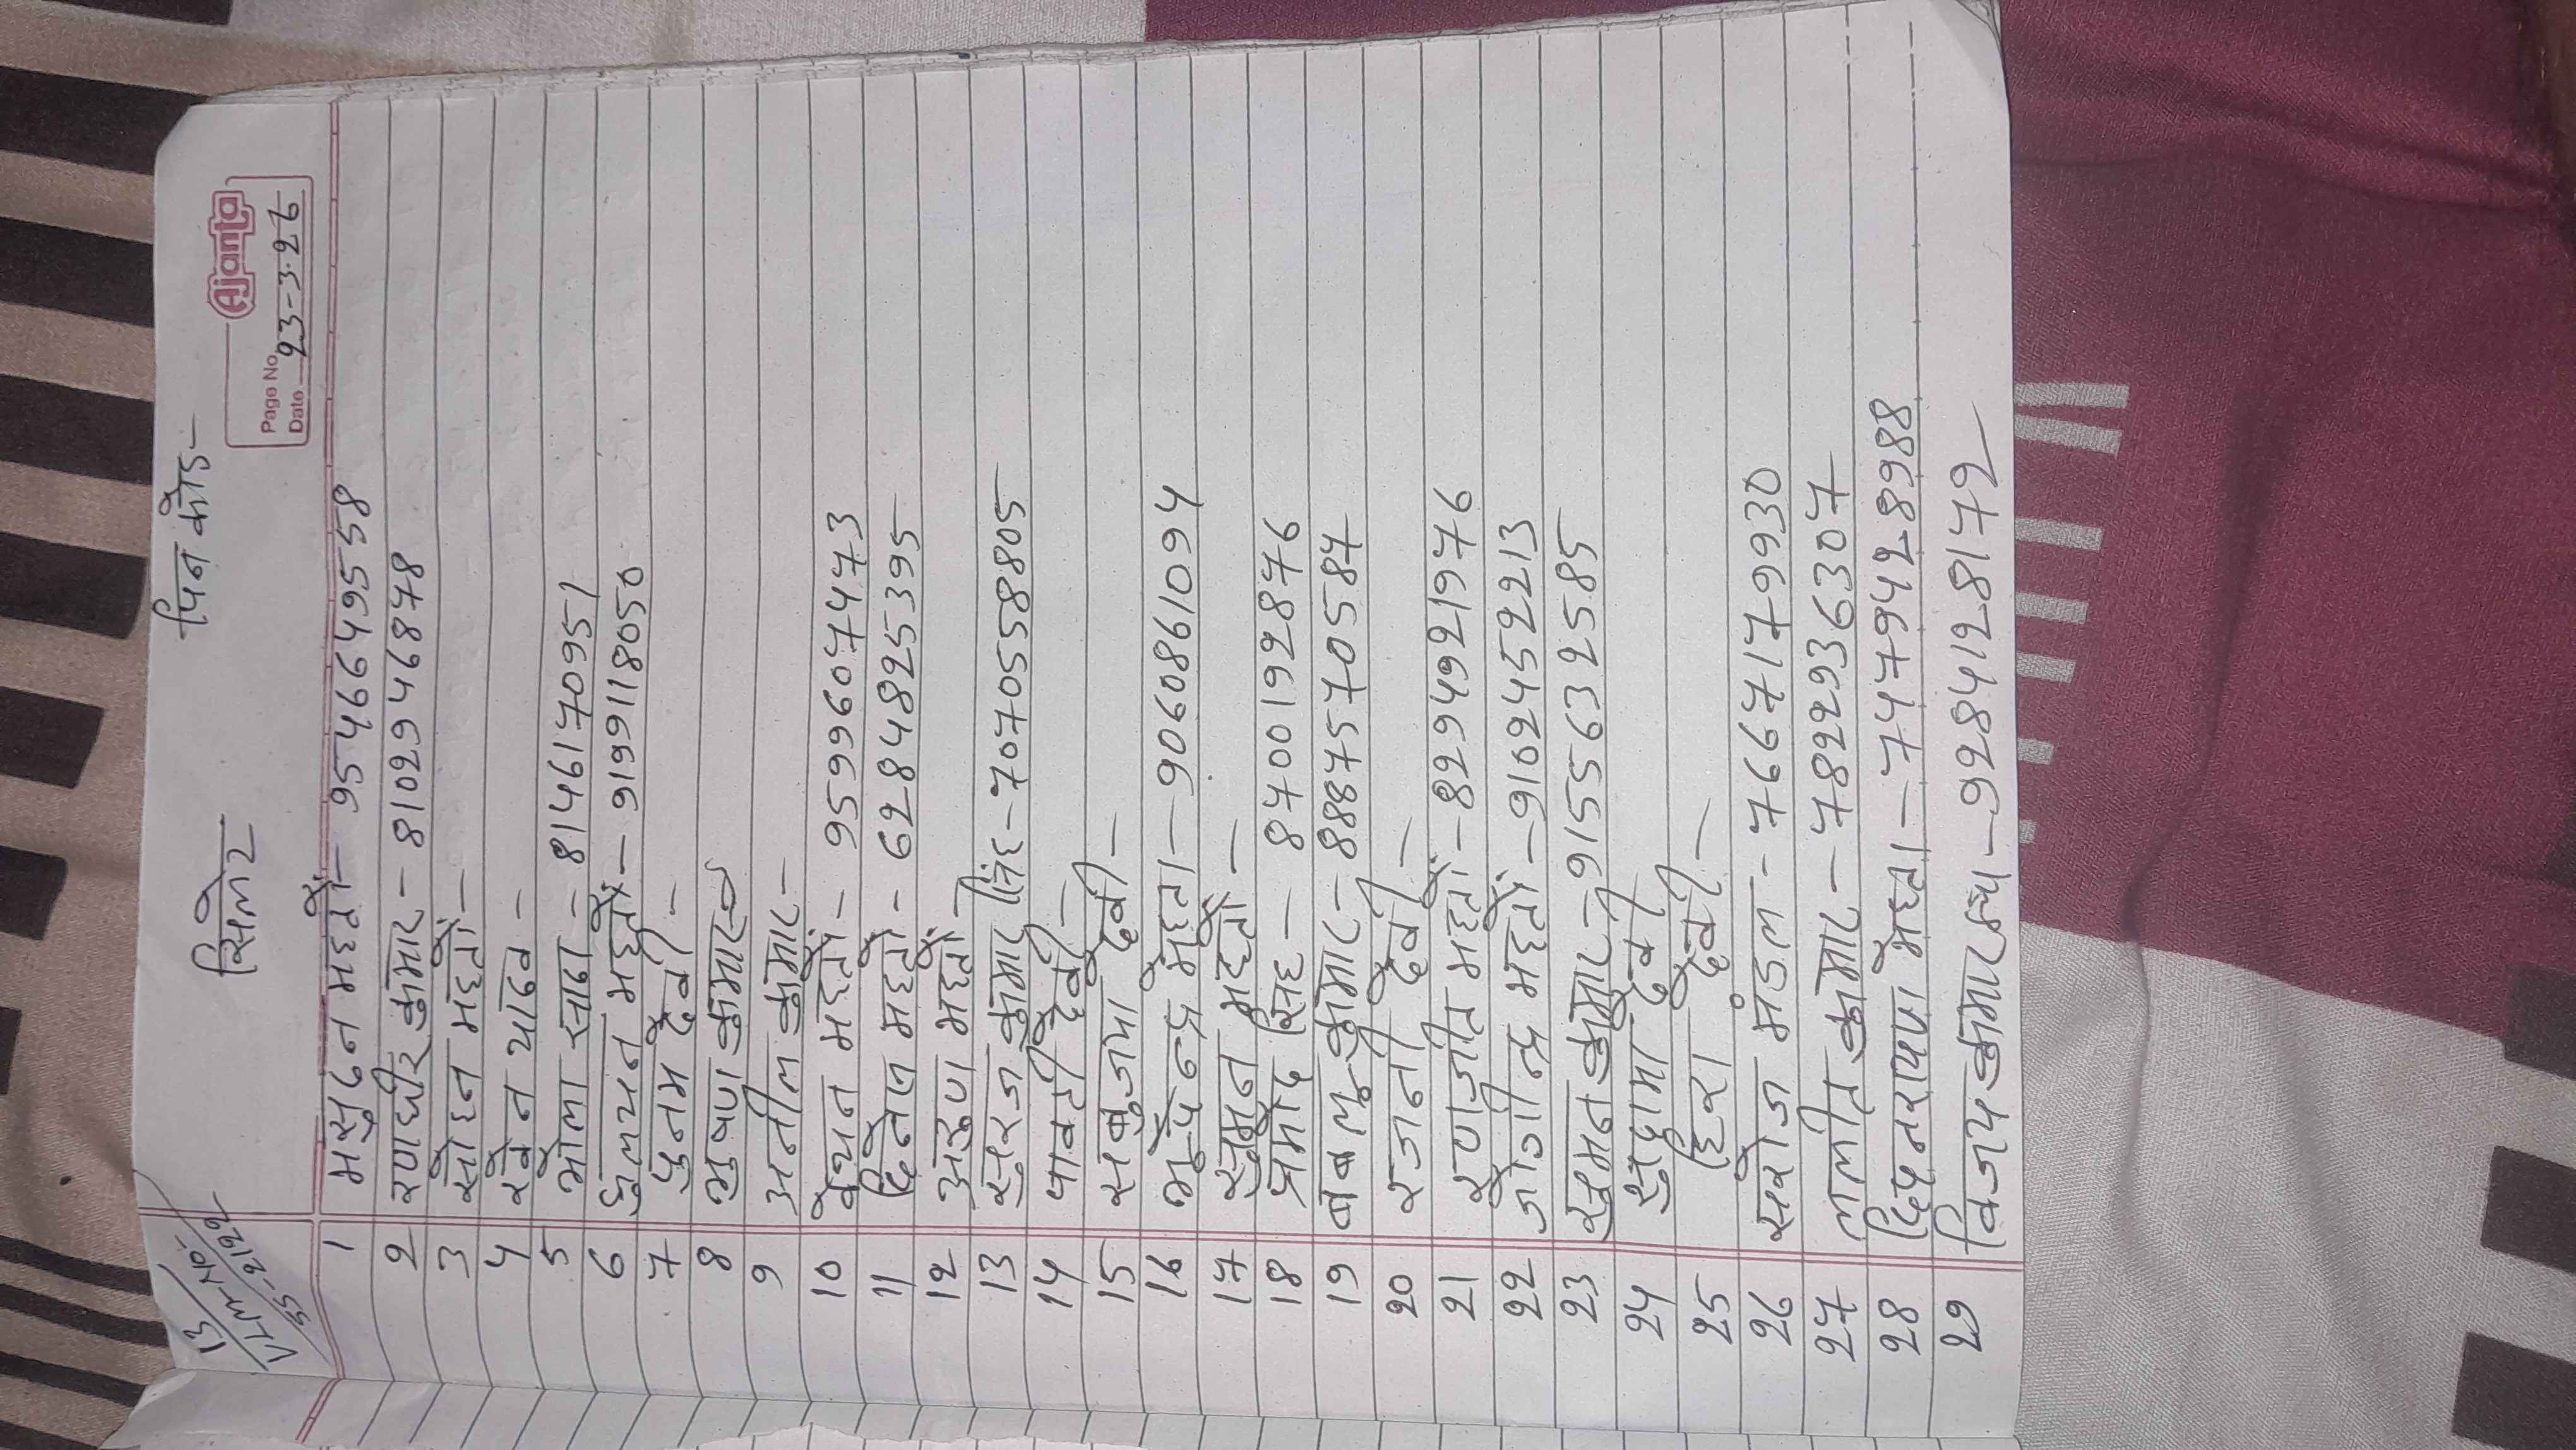 13/
VLMT NO-
SS-2122
पिन कोड-
सिलेट
Ajanta
Page No
Date 23-3-26
1 मसुदन महतों - 9546649558
2 रणधीर कुमार - 8102946878
3 सोहन महतों -
4 खेन यादव -
5 भोला साहा - 8146170951
6 फुलयन महतों - 9199118050
7 पुनम देवी -
8 भुषण कुमार
9 अनील कुमार -
10 वेधन महतों - 9599607473
11 दिनेश महतो - 6284825395
12 अरुण महतो -
13 सुरज कुमार सिंह - 7070558805
14 पावती देवी -
15 सबुजमा देवी -
16 भूपेन्द्र मेहता - 9060861094
17 सुमन महतों -
18 प्रमोद सिह - 8700192876
19 बबलू कुमार - 8887570587
20 रजनी देवी -
21 रणजीत महतों - 8294921976
22 जोगीन्द्र महतों - 9102452213
23 सुमन कुमार - 9155632585
24 सुदामा देवी
25 हिरा देवी -
26 सरोज मंडल - 7667179930
27 ललीत कुमार - 7822936307
28 दिपनरायण मेहता - 7479428988
29 विजय कुमार - 9284128172